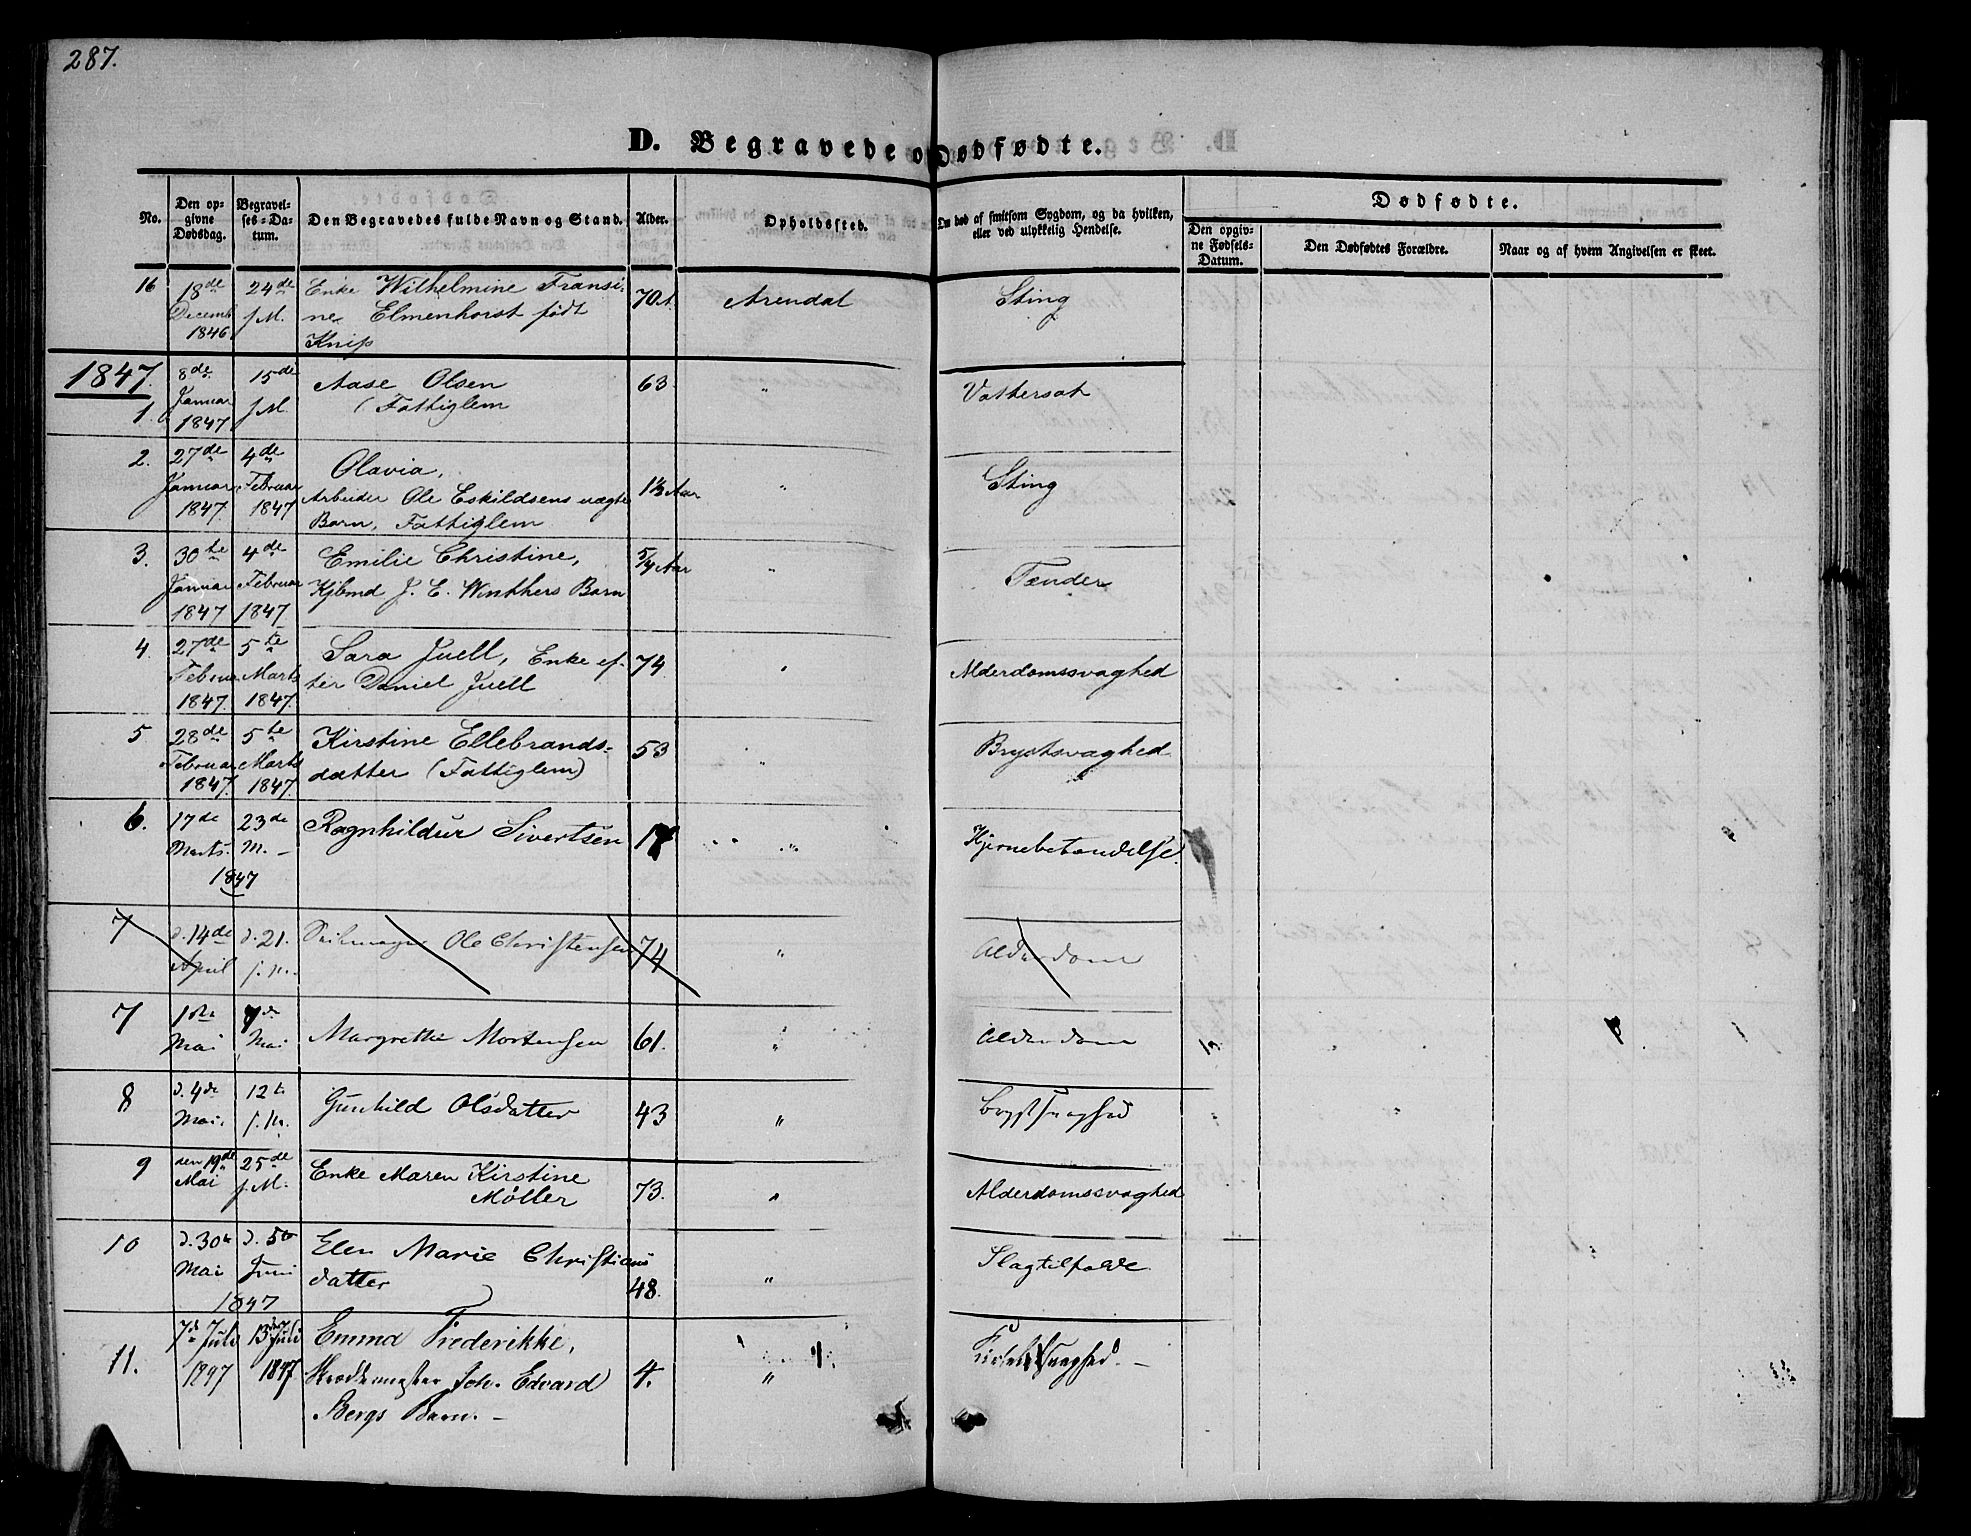 287.
D. Begravede o Dødfødte.
No. Den opgivne Dødsdag. Begravelses-Datum. Den Begravedes fulde Navn og Stand. Alder. Opholdssted. Om død af smitsom Sygdom, og da hvilken, eller ved ulykkelig Hendelse. Dødfødte.
Den opgivne Fødsels-Datum. Den Dødfødtes Forældre. Naar og af hvem Angivelsen er skeet.
16 18de 24de Enke Wilhelmine Fransi- 70 A. Arendal Sting
Decemb f.M. ne Elmenhorst født
1846 Knip
1847.
1. 8de 15de Aase Olsen 63 " Vattersot
Januar f.M. (Fattiglem
1847
2. 27de 4de Olavia, 1½ Aar " Sting
Januar Februar Arbeider Ole Eskildsens uægte
1847 1847 Barn, Fattiglem
3. 30te 4de Emilie Christine, 5/4 Aar " Tænder
Januar Februar Kjbmd J. E. Winthers Barn
1847 1847
4. 27de 5te Sara Juell, Enke ef- 74 " Alderdomssvaghed
Februar Marts ter Daniel Juell
1847. 1847.
5 28de 5te Kirstine Ellebrands- 53 " Brystsvaghed
Februar Marts datter (Fattiglem)
1847. 1847.
6. 17de 23de Ragnhildur Sivertsen 17 " Hjernebetændelse.
Marts. M. –
1847
7 d. 14de d. 21. Ole Christensen 74 " Alderdom
April f.M.
7 1ste 7de Margrethe Mortensen 61. " Alderdom
Mai Mai
8 d. 4de 12te Gunhild Olsdatter 43 " Brystsvaghed
Mai. f.M.
9 den 19de 25de Enke Maren Kirstine 73. " Alderdomssvaghed
Mai f.M. Møller
10 d. 30te d. 5te Elen Marie Christians 48. " Slagtilfælde
Mai Juni datter
1847
11. 7de Juli 13de Juli Emma Frederikke, 4. "
1847 1847 Joh. Edvard
Bergs Barn. –